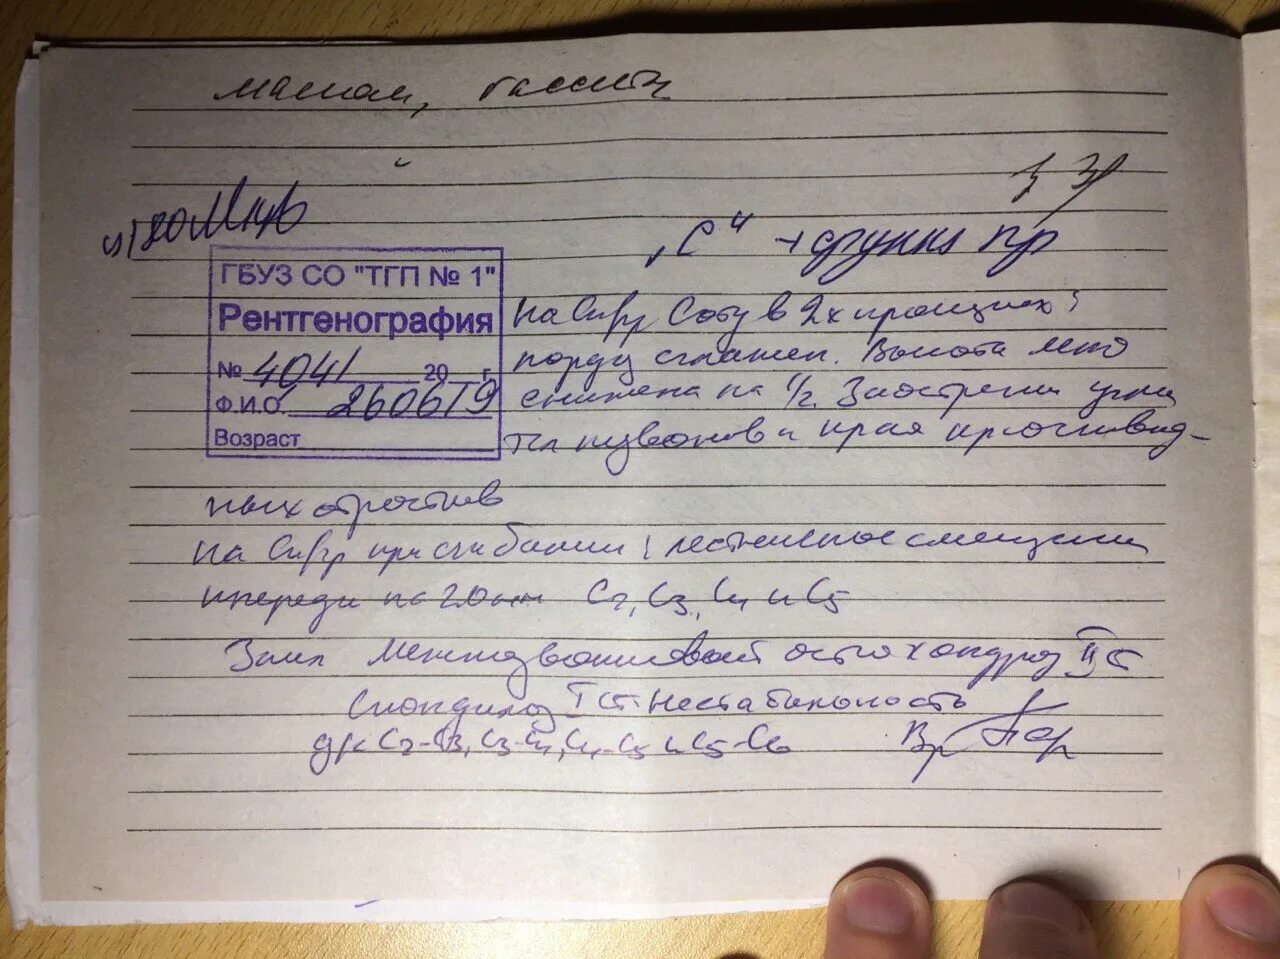 массаж,
"С" + функц пр
ГБУЗ СО "ТГП № 1"
Рентгенография
№ 4041 20 г.
Ф.И.О. 260619
Возраст
На С/гр Сотд в 2х проекциях:
лордоз сглажен. Высота мпд
снижена на 1/2. Заострены углы
тел позвонков и края крючковид-
ных отростков
На С/гр при сгибании лестничное смещение
кпереди на 2.0мм С2, С3, С4 и С5
Закл Межпозвонковый остеохондроз II ст
Спондилоз I ст. Нестабильность
д/к С2-С3, С3-С4, С4-С5 и С5-С6 Вр